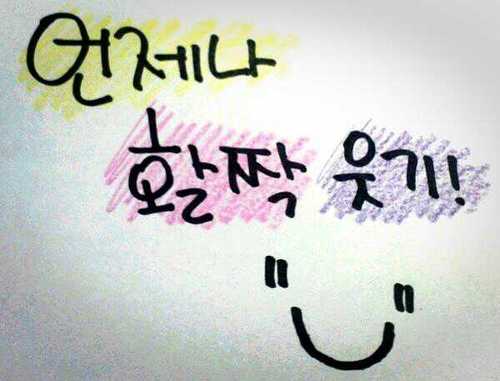 언제나
활짝 웃기!